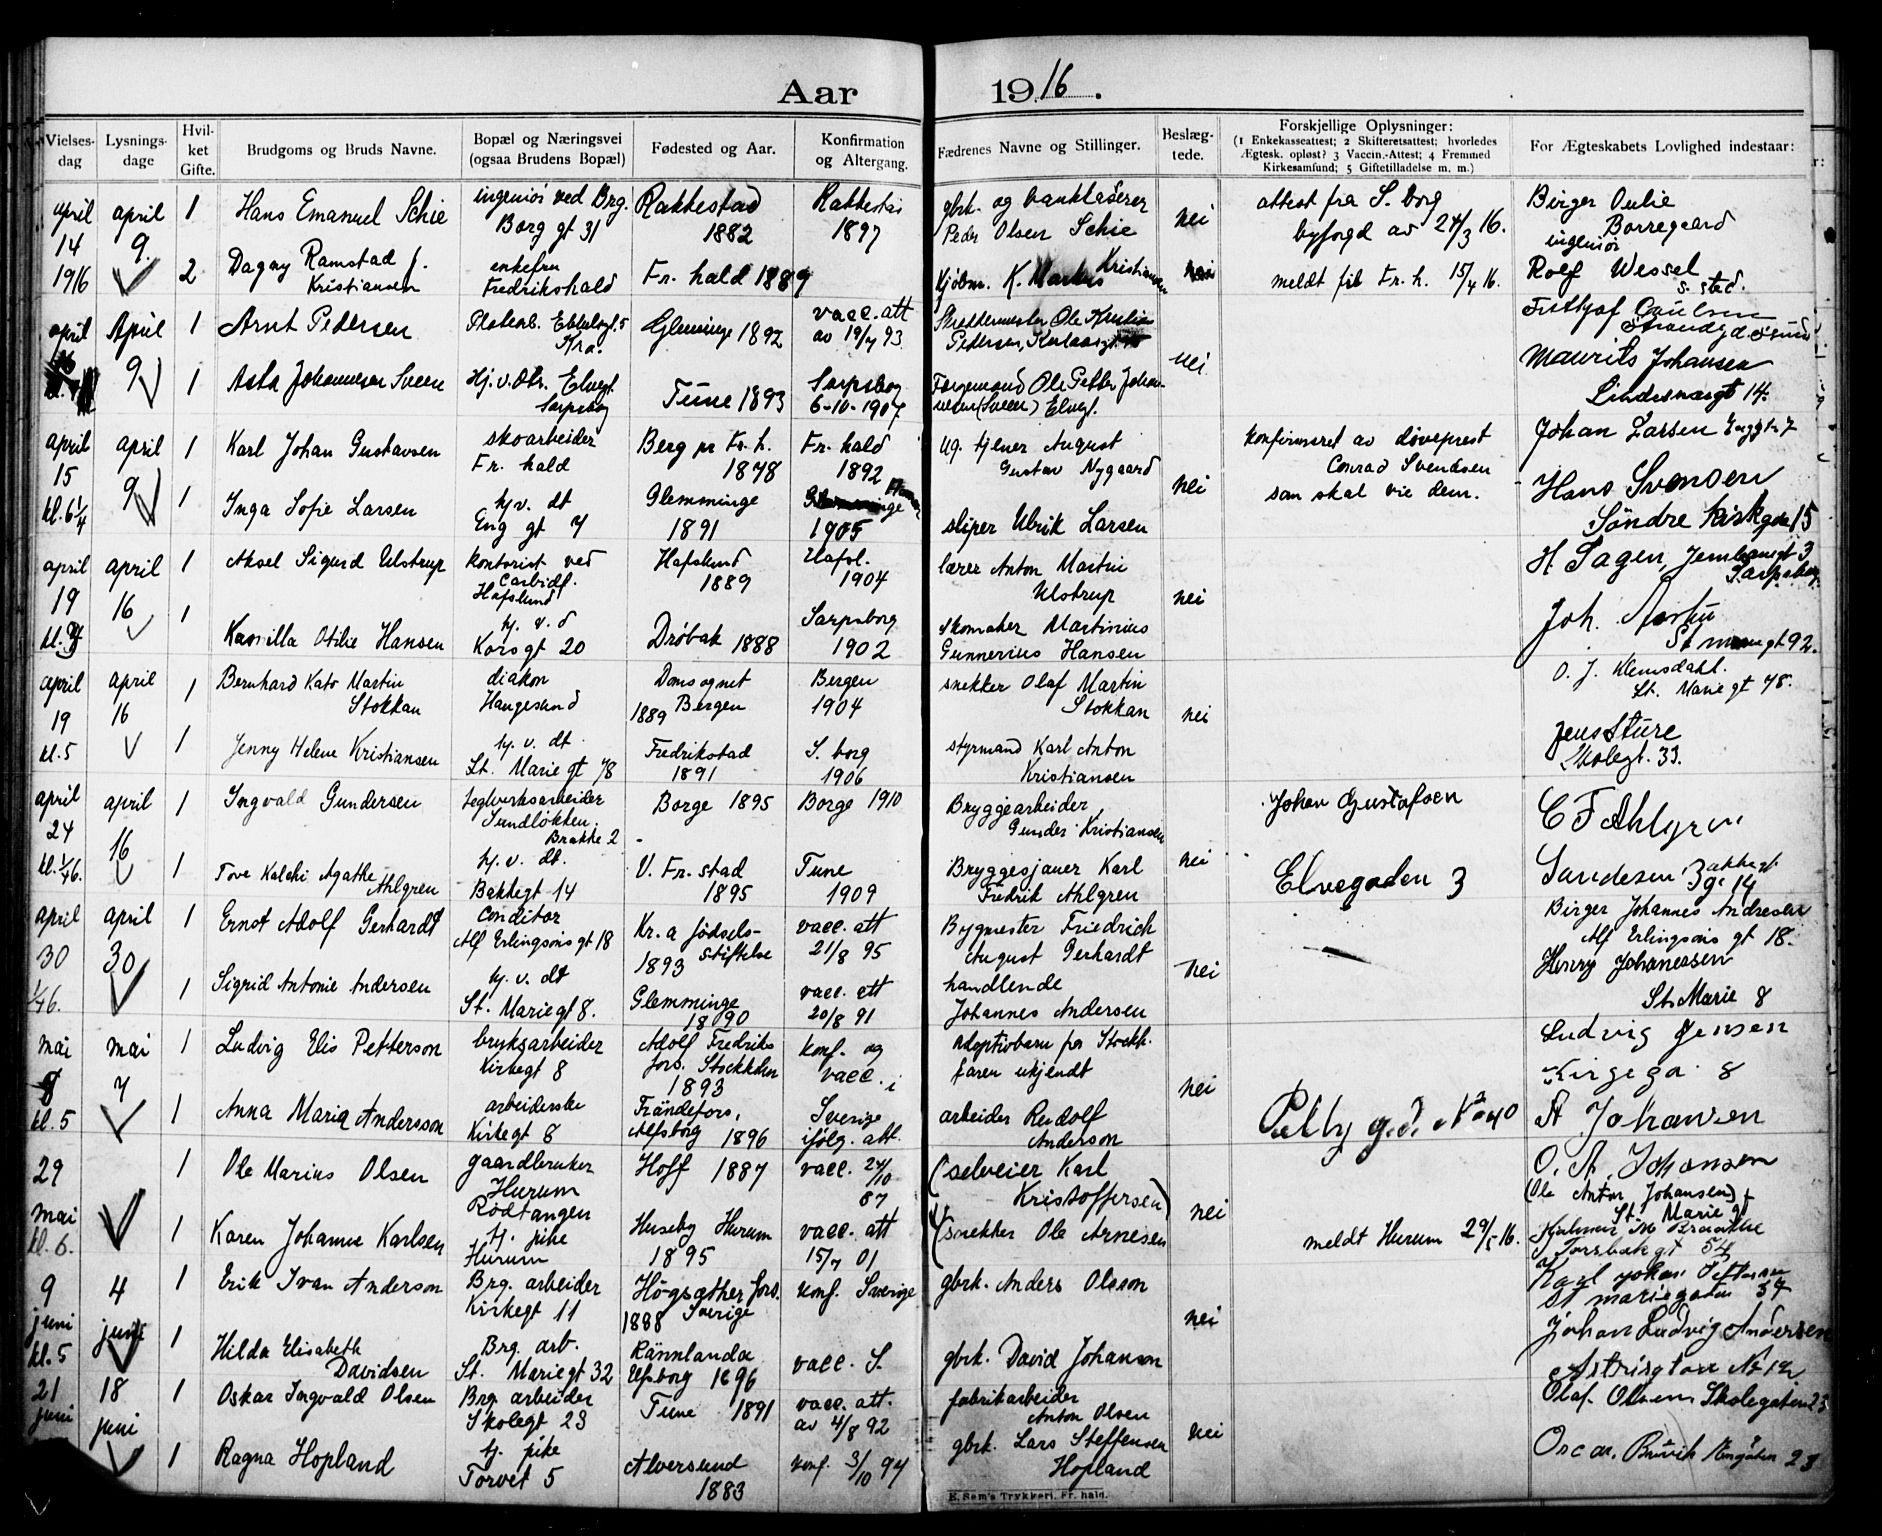 Aar 1916.
Vielses-dag Lysnings-dage Hvil-ket Gifte. Brudgoms og Bruds Navne. Bopæl og Næringsvei (ogsaa Brudens Bopæl) Fødested og Aar. Konfirmation og Altergang. Fædrenes Navne og Stillinger. Beslæg-tede. Forskjellige Oplysninger: (1 Enkekasseattest; 2 Skifteretsattest; hvorledes Ægtesk. opløst? 3 Vaccin.-Attest; 4 Fremmed Kirkesamfund; 5 Giftetilladelse m. m.) For Ægteskabets Lovlighed indestaar:
april 14 april 9. 1 Hans Emanuel Schie ingeniør ved Brg. Borg gt 31 Rakkestad 1882 Rakkestad 1897 gbrk. og bankkasserer Peder Olsen Schie nei attest fra S. borg byfogd av 24/3 16. Birger Borregaard ingeniør
1916 2 Dagny Ramstad f. Kristiansen enkefru Fredrikshald Fr. hald 1889 Kjöbm. K. Markus Kristiansen nei meldt fil Fr. h. 15/4 16. Rolf Wessel S. stad.
april April 9 1 Arnt Pedersen Kra. Glemminge 1892 vacc. att av 19/7 93. Skreddermester Ole Pedersen nei
1 Asta Johannesen Sveen Hj. v. Elvegt. Sarpsborg Tune 1893 Sarpsborg 6-10-1907 Ole Petter Johannesen (Sveen) Elvegt. Maurits Johansen Lindesnæsgt 14.
april 15 april 9 1 Karl Johan Gustavsen skoarbeider Fr. hald Berg pr Fr. h. 1878 Fr. hald 1892 ug. tjener August Gustav Nygaard nei konfirmeret av døveprest Conrad Svendsen som skal vie dem. Johan Larsen Enggt 7
kl. 6 1/4 1 Inga Sofie Larsen hj. v. dt Eng gt 7 Glemminge 1891 1905 sliper Ulrik Larsen Hans Svensen Söndre Kirkgt 15
april 19 april 16 1 Aksel Sigurd Ulstrup kontorist ved Carbidf. Hafslund Hafslund 1889 Hafsl. 1904 lærer Anton Martin Ulstrup nei H. Sagen, Jernbanegt 3 Sarpsborg
1 Kamilla Otilie Hansen hj. v. d Korsgt 20 Drøbak 1888 Sarpsborg 1902 skomaker Martinius Gunnerius Hansen Joh. St mariegt 92.
april 19 april 16 1 Bernhard Kato Martin Stokkan diakon Haugesund Domsognet Bergen 1889 Bergen 1904 snekker Olaf Martin Stokkan nei O. J. Klemsdahl. St. Marie gt 78.
kl. 5 1 Jenny Helene Kristiansen hj. v. dt. St. Marie gt 78 Fredrikstad 1891 S. borg 1906 styrmand Karl Anton Kristiansen Jens Sture Skolegt. 33.
april 24 april 16 1 Ingvald Gundersen teglverksarbeider Sundløkken. Brakke 2 Borge 1895 Borge 1910 Bryggearbeider Gunder Kristiansen nei Johan Gustafsen C F Ahlgren
1 Tove Agathe Ahlgren hj. v. dt. Bakkegt 14 V. Fr. stad 1895 Tune 1909 Bryggesjauer Karl Fredrik Ahlgren Elvegaden 3 Bakkegt. 14
april 30 april 30 1 Ernst Adolf Gerhardt Conditor Alf Erlingsöns gt 18 Kr. a fødsels-stiftelse 1893 vacc. att 21/8 95 Bygmester Friedrich August Gerhardt nei Birger Johannes Andresen Alf Erlingsöns gt 18.
1 Sigrid Antonie Andersen hj. v. dt St. Mariegt 8. Glemminge 1890 vacc. att 20/8 91 handlende Johannes Andersen Henry Johannessen St. Marie 8
mai 8 mai 7 1 Ludvig Elis Petterson bruksarbeider Kirkegt 8 Adolf Fredriks fors. Stockholm 1893 konf. og vacc. i Adoptivbarn fra Stockh. faren ukjendt nei Ludvig Jensen 8
kl. 5 1 Anna Maria Andersson arbeiderske Kirkegt 8 Frändefors, Alfsborg 1896 Sverige ifølg. att. arbeider Rudolf Anderson A Johansen
29 mai kl. 6. 1 Ole Marius Olsen gaardbruker Hurum Rødtangen Hoff 1887 vacc. 24/10 87 (selveier Karl Kristoffersen) nei O. A. Johansen (Ole Anton Johansen) St. Marie gt
1 Karen Johanne Karlsen tj. pike Hurum Huseby Hurum 1895 vacc. att 15/7 01 (snekker Ole Arnesen meldt Hurum 29/5 16. Torsbækgt 54
9 juni kl. 5 4 juni 1 Erik Ivan Anderson Brg. arbeider Kirkegt 11 Högsäther fors. 1888 Sverige konf. Sverige gbrk. Anders Olsson nei Karl Johan Pettersen St mariegaten 37
1 Hilda Elisabeth Davidsen Brg. arb. St. Mariegt 32 Rännlanda Elfsborg 1896 vacc. S. gbrk. David Johanson Johan Ludvig Andersen
21 juni 18 juni 1 Oskar Ingvald Olsen Brg. arbeider Skolegt 23 Tune 1891 vacc. att. av 4/8 92 fabrikarbeider Anton Olsen nei Olaf Olsen Skolegaten 23
1 Ragna Hopland tj. pike Torvet 5 Alversund 1883 konf. 3/10 97 gbrk. Lars Steffensen Hopland Oscar
E. Sem's Trykkeri. Fr. hald.